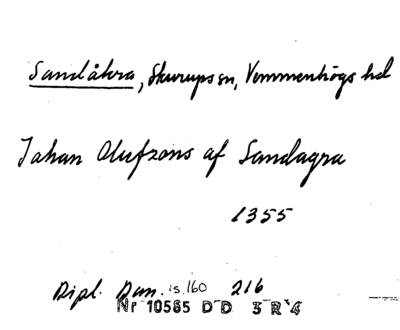 Sandåkra, Skurups sn, Vemmenhögs hd
Johan Olufzøns af Sandagra
1355
Dipl. Dan. s. 160 216
Nr 10565 DD 3 R 4